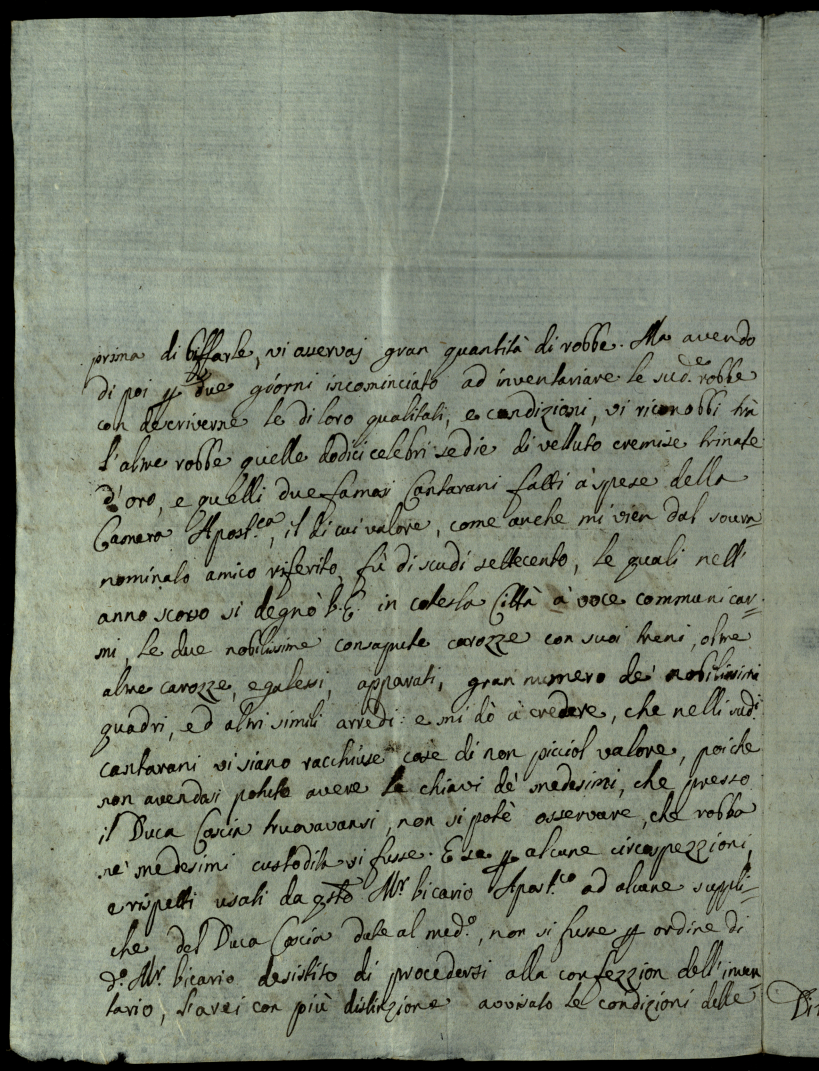 prima di biffarle, vi avervaj gran quantità di robbe. Ma avendo
di poi p due giorni incominciato ad inventariare le sud.e robbe
con descriverne le di loro qualitati, e condizioni, vi riconobbi trà
l'altre robbe quelle dodici celebri sedie di velluto cremise trinate
d'oro, e quelli due famosi Cantarani fatti à spese della
Camera Apost.ca, il di cui valore, come anche mi vien dal sovra
nominato amico riferito, fù di scudi settecento, le quali nell'
anno scorso si degnò V.E. in cotesta Città à voce communicar=
mi, le due nobilissime consapute carozze con suoi treni, oltre
altre carozze, e galessi, apparati, gran numero de' nobilissimi
quadri, ed altri simili arredi: e mi dò à credere, che nelli sud.i
cantarani vi siano racchiuse cose di non picciol valore, poiche
non avendosi potuto avere le chiavi de' medesimi, che presso
il Duca Coscia truovavansi, non si potè osservare, che robba
ne' medesimi custodita si fusse. E se p alcune circospezzioni,
e rispetti usati da qsto Mr. Vicario Apost.co ad alcune suppli=
che del Duca Coscia date al med.o, non si fusse p ordine di
d.o Mr. Vicario desistito di procedersi alla confezzion dell'inven
tario, l'avrei con più distinzione avvisato le condizioni delle